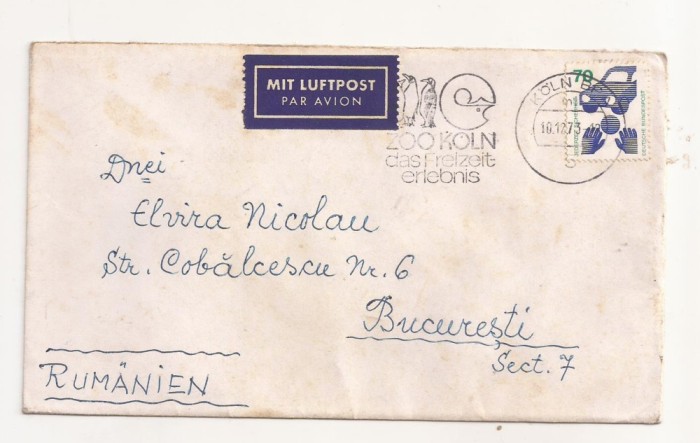 MIT LUFTPOST
PAR AVION
ZOO KÖLN
das Freizeit-
erlebnis
KÖLN
10.12.73
70
DEUTSCHE BUNDESPOST
Dnei
Elvira Nicolau
Str. Cobălcescu Nr. 6
București
Sect. 7
RUMÄNIEN